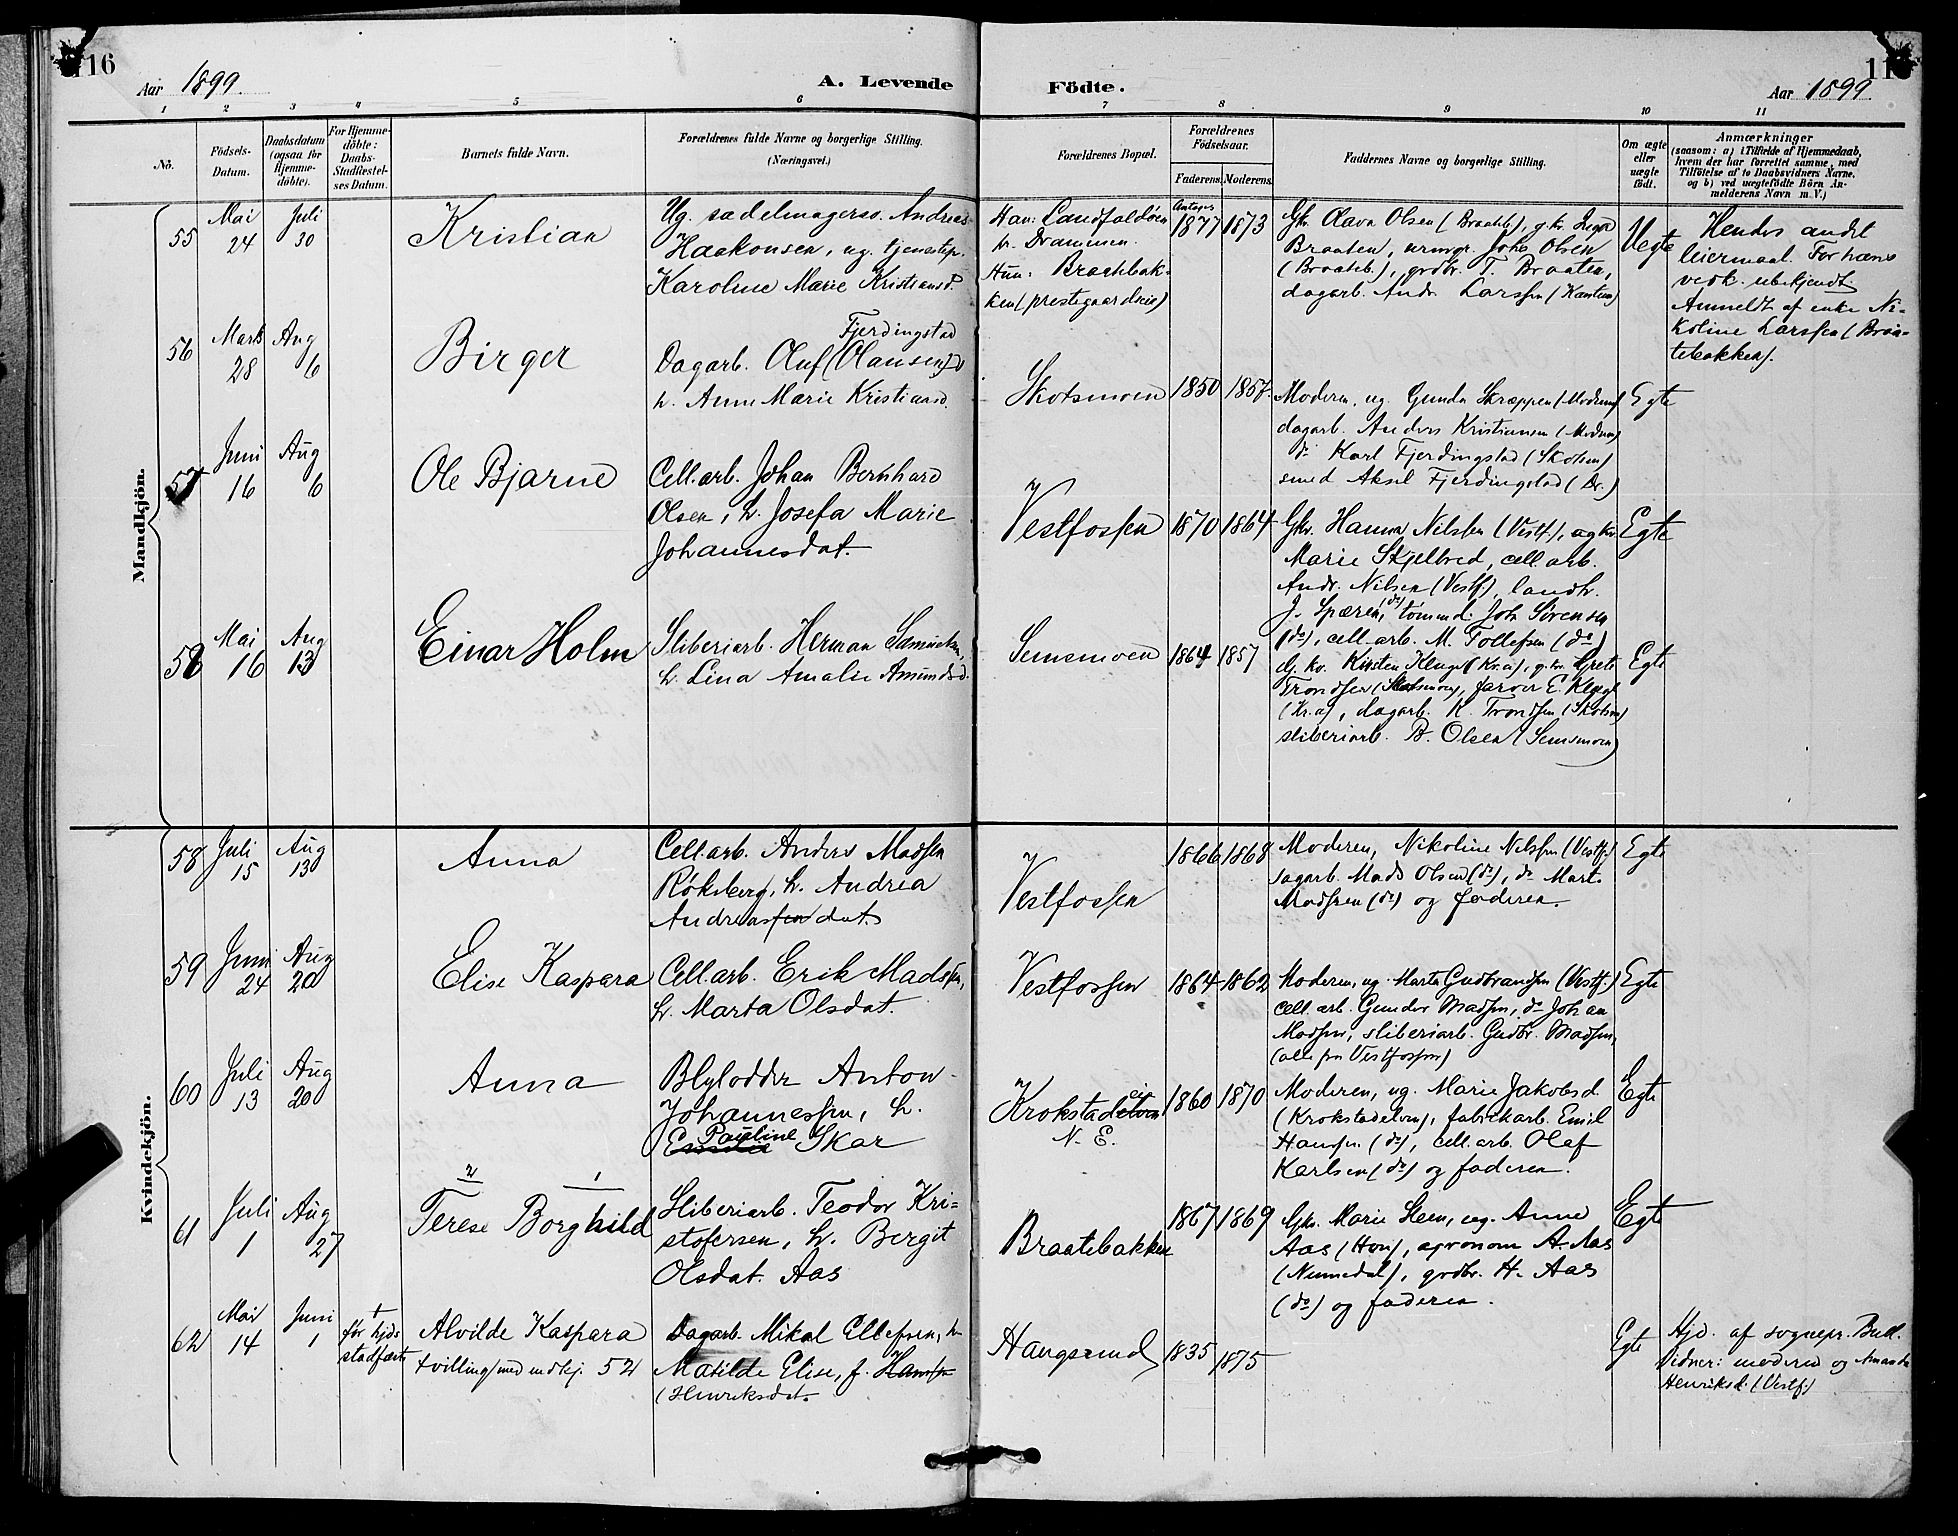 116
Aar 1899.
A. Levende
Födte.
11
Aar 1899
1 2 3 4 5 6 7 8 9 10 11
No.
Födsels-
Datum.
Daabsdatum
(ogsaa for
Hjemme-
döbte).
For Hjemme-
döbte:
Daabs-
Stadfæstel-
ses Datum.
Barnets fulde Navn.
Forældrenes fulde Navne og borgerlige Stilling.
(Næringsvei.)
Forældrenes Bopæl.
Forældrenes
Födselsaar.
Faderens. Moderens.
Faddernes Navne og borgerlige Stilling.
Om ægte
eller
uægte
födt.
Anmærkninger
(saasom: a) i Tilfælde af Hjemmedaab,
hvem der har forrettet samme, med
Tilföielse af to Daabsvidners Navne.
og b) ved uægtefödte Börn An-
melderens Navn m. V.)
Mandkjön.
55
Mai
24
Juli
30
Kristian
Ug. sadelmagersv. Andreas
Haakonsen, ug. tjenestep.
Karoline Marie Kristiansd.
Han: Landfaldöen
v. Drammen.
Hun: Braatebak-
ken (prestegaardseie)
Antages
1877 1873
Gkv. Olava Olsen (Braateb), g. kv. Inga
Braaten, urmgr. Johs Olsen
(Braateb.), grdbr. T. Braaten,
dagarb. Andr. Larssen
Uegte
Hendes andet
leiermaal. For hans
vedk. ubekjendt.
Anmeldt af enke Ni-
koline Larssen (Braa-
tebakken).
56
Marts
28
Aug
6
Birger
Fjerdingstad
Dagarb. Oluf (Olausen)
h. Anne Marie Kristiansd.
Skotsmoen
1850 1857.
Moderen, ug. Gunda Skræppen (Modum)
dagarb. Anders Kristiansen (Modum)
do Karl Fjerdingstad (Skotsm)
smed Aksel Fjerdingstad (Dr.)
Egte
57
Juni
16
Aug
6
Ole Bjarne
Cell.arb. Johan Bernhard
Olsen, h. Josefa Marie
Johannesdat.
Vestfossen
1870 1864
Gkv. Hanna Nilssen (Vestf),
Marie Skjelbred, cell. arb.
Andr. Nilsen (Vestf), landh.
J. Spæren (do) tömmd. Joh Sörensen
(do), cell. arb. M. Tollefsen (do)
Egte
58
Mai
16
Aug
13
Einar Holm
Sliberiarb. Herman Samuelsen
h. Lina Amalie Amundsd.
Semsmoen
1864 1857
G. kv. Kirsten (Kr.a), g. kv. Grete
Trondsen (Skotsmoen), farver E.
(Kr.a), dagarb. K. Trondsen (Skotsm)
sliberiarb. B. Olsen (Semsmoen)
Egte
Kvindekjön.
58
Juli
15
Aug
13
Anna
Cell.arb. Anders Madsen
Röksberg, h. Andrea
Andreassen dat.
Vestfossen
1866 1868
Moderen, Nikoline Nilssen (Vestf.)
sagarb. Mads Olsen (do), do Mart.
Madsen (do) og faderen.
Egte
59
Juni
24
Aug
20
Elise Kaspara
Cell.arb. Erik Madsen,
h. Marta Olsdat.
Vestfossen
1864 1862
Moderen, ug. Marta Gudbrandsen (Vestf.)
cell. arb. Gunder Madsen, do Johan
Madsen, sliberiarb. Gudbr. Madsen,
(alle fra Vestfossen)
Egte
60
Juli
13
Aug
20
Anna
Blylodder Anton
Johannessen, h.
Pauline
Skar
Krokstadelven
N. E.
1860 1870
Moderen, ug. Marie Jakobsd
(Krokstadelven), fabrikarb. Emil
Hansen (do), cell. arb. Olaf
Karlsen (do) og faderen.
Egte
61
Juli
1
Aug
27
2 1
Terese Borghild
Sliberiarb. Teodor Kri-
stofersen, h. Bergit
Olsdat. Aas
Braatebakken
1867 1869
Gkv. Marie Steen, ug. Anne
Aas (Hon), agronom A. Aas
(Numedal), grdbr. H. Aas
(do) og faderen.
Egte
62
Mai
14
Juni
1
†
för hjds
stadfæst
Alvilde Kaspara
tvilling med mdkj. 52
Dagarb. Mikal Ellefsen, h.
Matilde Elise, f. Hansen
(Henriksdat.
Haugsrud
1835 1875
Egte
Hjd. af sognepr. Bull.
Vidner: moderen og Amanda
Henriksd. (Vestf.)